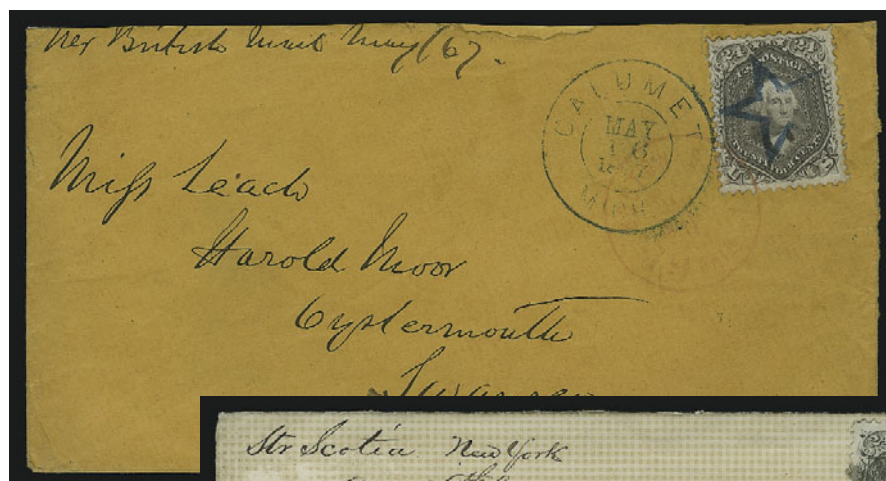 Per British Mail May/67.
CALUMET
MAY
16
1867
MICH.
24 24
U.S. POSTAGE
Miss Leach
Harold Moor
Oystermouth
Swansea
Str Scotia New York